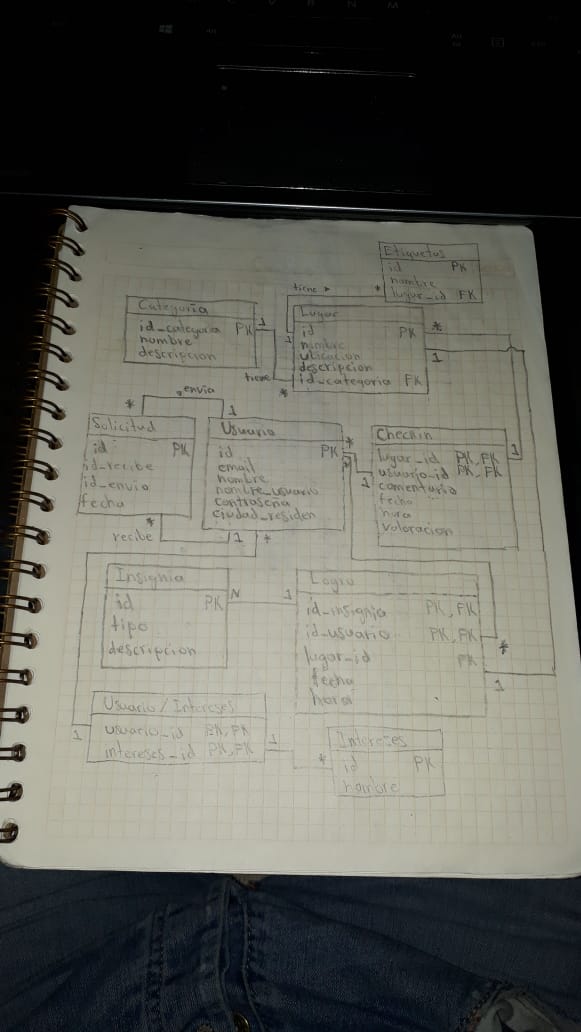 Etiquetas
id PK
nombre
lugar_id FK
tiene
*
Categoria
id_categoria PK
nombre
descripcion
1
tiene
*
1
Lugar
id PK
nombre
ubicacion
descripcion
id_categoria FK
*
1
envia
*
1
Solicitud
id PK
id_recibe
id_envio
fecha
*
recibe
1
*
Usuario
id PK
email
nombre
nombre_usuario
contraseña
ciudad_residen
*
*
1
Checkin
lugar_id PK, FK
usuario_id PK, FK
comentario
fecha
hora
valoracion
1
Insignia
id PK
tipo
descripcion
N
1
Logro
id_insignia PK, FK
id_usuario PK, FK
lugar_id PK
fecha
hora
*
1
Usuario / Intereses
usuario_id PK, FK
intereses_id PK, FK
1
1
*
Intereses
id PK
nombre